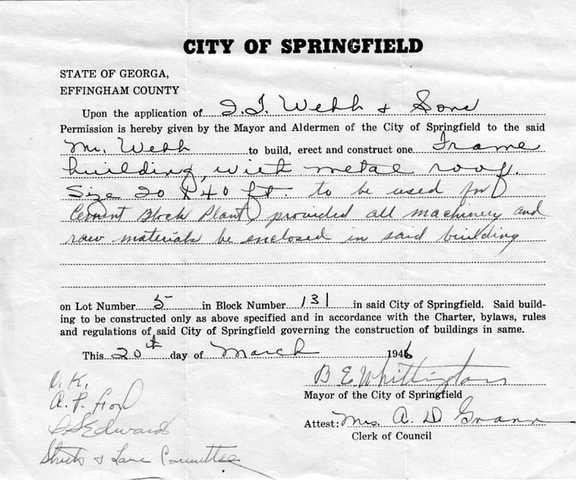 CITY OF SPRINGFIELD
STATE OF GEORGA,
EFFINGHAM COUNTY
Upon the application of I. I. Webb & Sons
Permission is hereby given by the Mayor and Aldermen of the City of Springfield to the said
Mr. Webb to build, erect and construct one Frame
building, with metal roof.
Size 20 X 40 ft. to be used for
Cement Block Plant provided all machinery and
raw materials be enclosed in said building
on Lot Number 5 in Block Number 131 in said City of Springfield. Said build-
ing to be constructed only as above specified and in accordance with the Charter, bylaws, rules
and regulations of said City of Springfield governing the construction of buildings in same.
This 20th day of March 1946
B E Whittington
Mayor of the City of Springfield
Attest: Mrs. A. D.
Clerk of Council
O.K.
A. P.
Edwards
Streets & Lane Committee